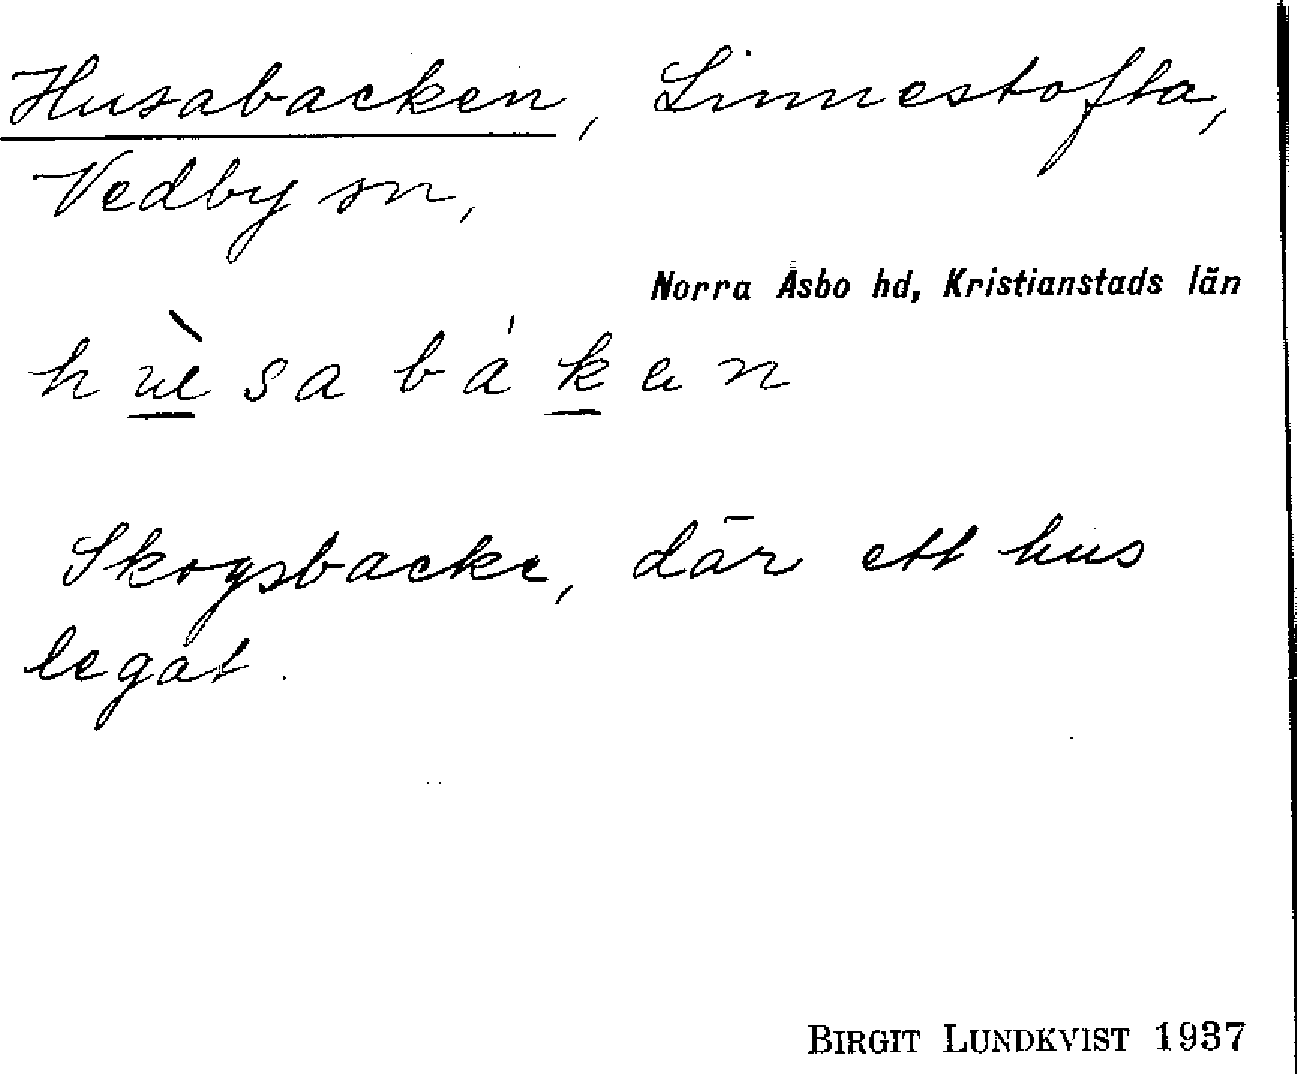 Husabacken, Linnestofta,
Vedby sn,
Norra Åsbo hd, Kristianstads län
Skogsbacke, där ett hus
legat.
BIRGIT LUNDKVIST 1937